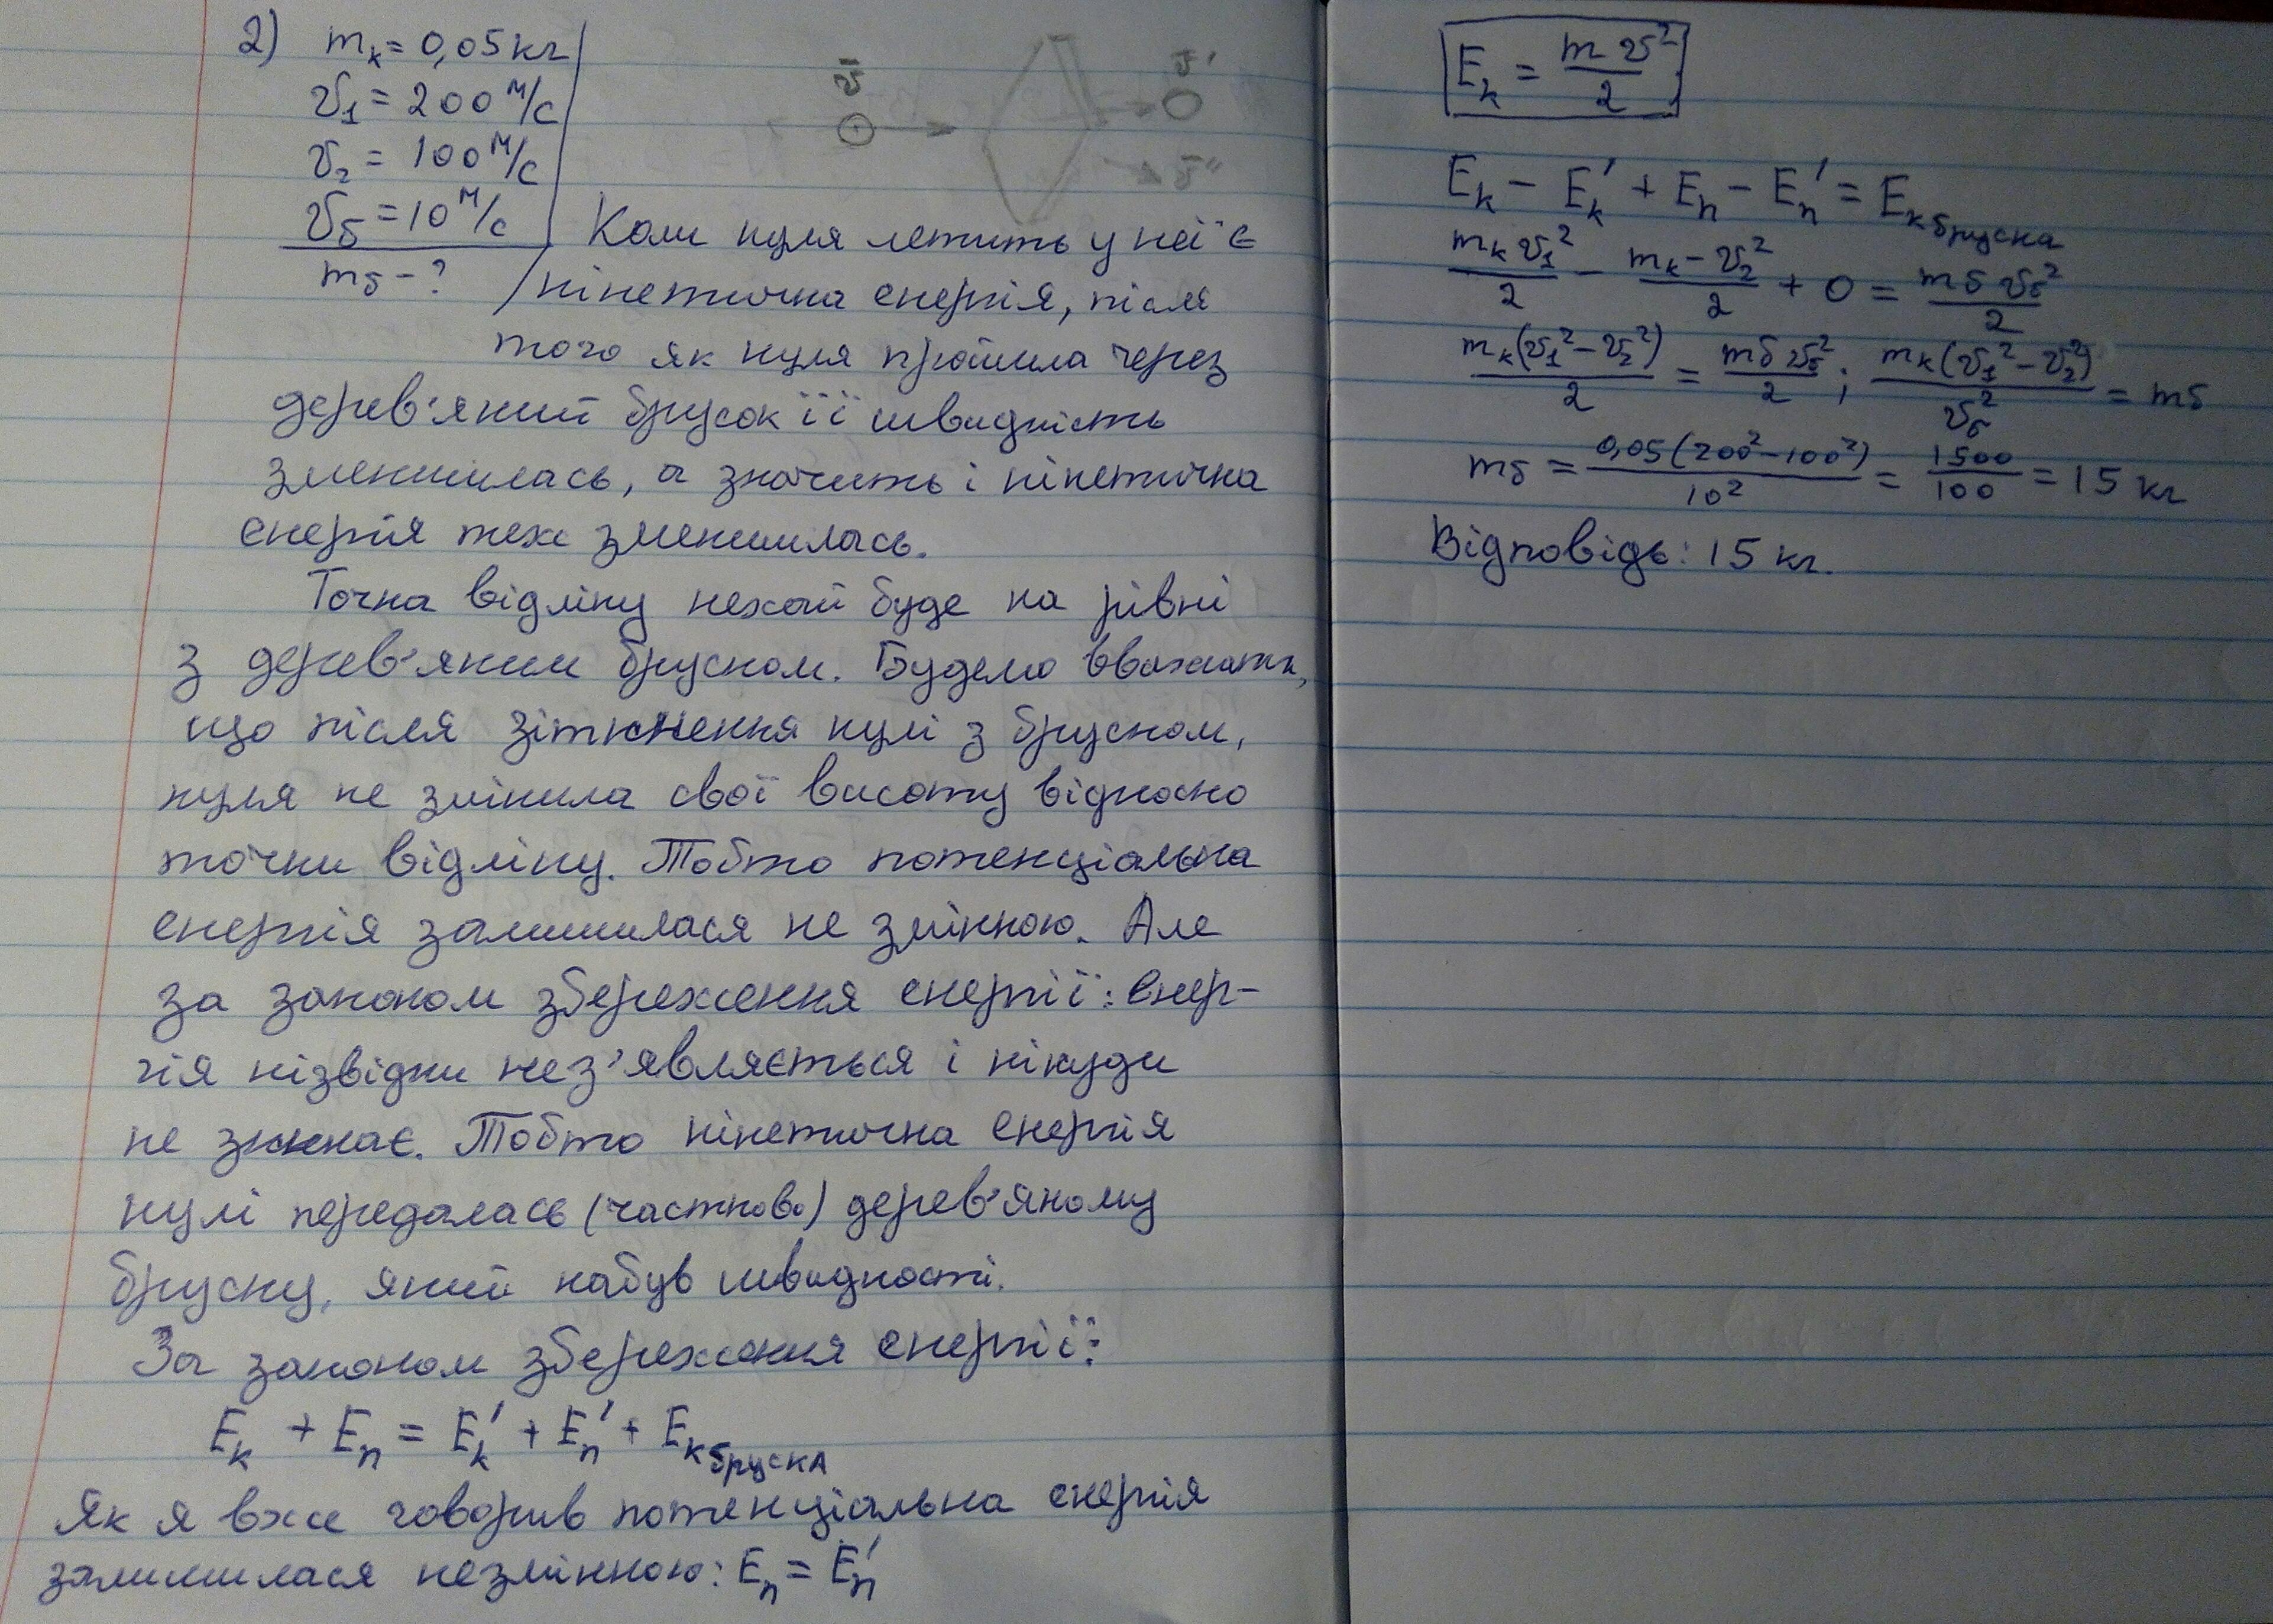 2) mк = 0,05 кг
υ1 = 200 м/с
υ2 = 100 м/с
υб = 10 м/с
mб - ?
ῡ
ῡ'
ῡ''
Коли куля летить у неї є
кінетична енергія, після
того як куля пройшла через
дерев'яний брусок її швидкість
зменшилась, а значить і кінетична
енергія теж зменшилась.
Точка відліку нехай буде на рівні
з дерев'яним бруском. Будемо вважати,
що після зіткнення кулі з бруском,
куля не змінила свої висоту відносно
точки відліку. Тобто потенціальна
енергія залишилася не змінною. Але
за законом збереження енергії: енер-
гія нізвідки нез'являється і нікуди
не зникає. Тобто кінетична енергія
кулі передалась (частково) дерев'яному
бруску, який набув швидкості.
За законом збереження енергії:
Eк + Eп = Eк' + Eп' + Eк бруска
Як я вже говорив потенціальна енергія
залишилася незмінною: Eп = Eп'
Eк = mυ²/2
Eк - Eк' + Eп - Eп' = Eк бруска
mк υ1²/2 - mк - υ2²/2 + 0 = mб υб²/2
mк(υ1² - υ2²)/2 = mб υб²/2 ; mк(υ1² - υ2²)/υб² = mб
mб = 0,05(200² - 100²)/10² = 1500/100 = 15 кг
Відповідь: 15 кг.